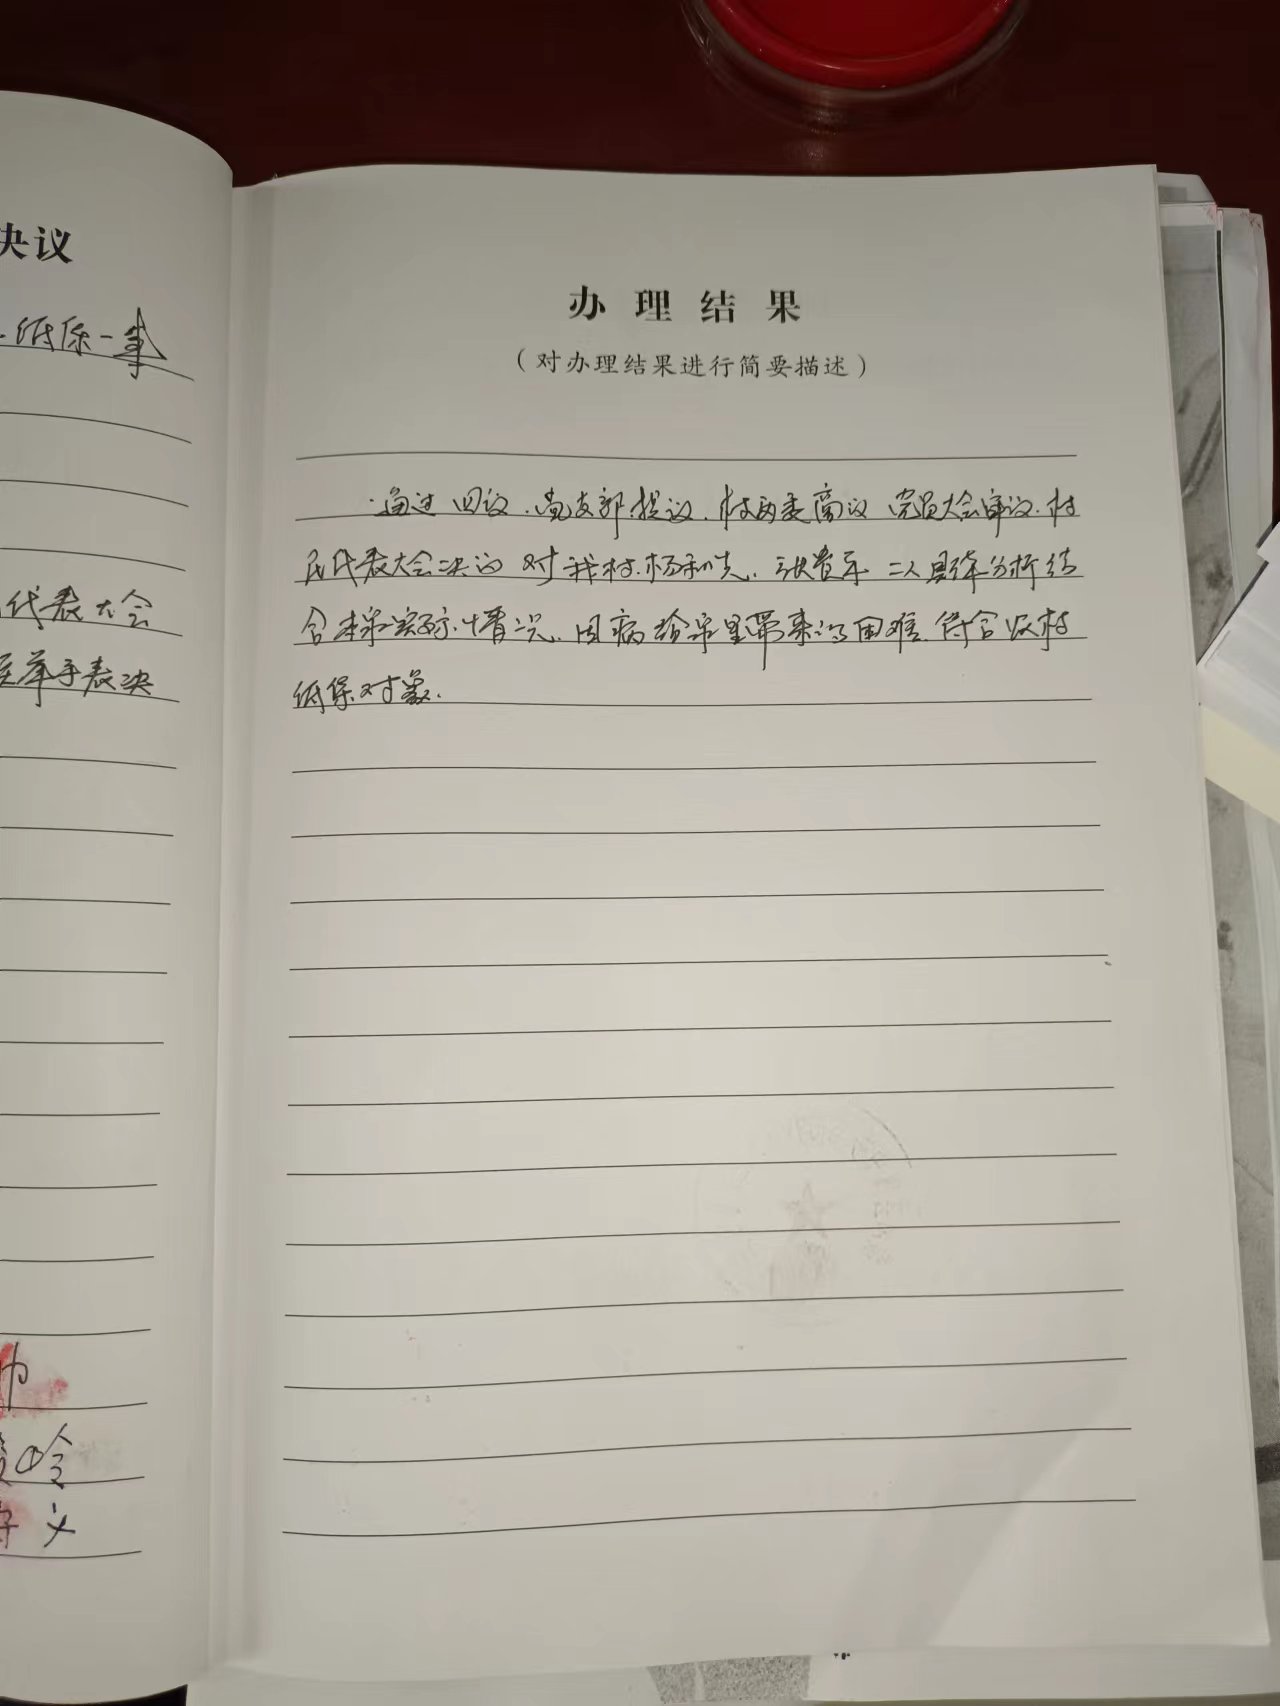 决议
低保一事
代表大会
举手表决
义
办理结果
（对办理结果进行简要描述）
通过四议.党支部提议.村两委商议 党员大会审议.村
民代表大会决议 对我村.杨和先. 二人具体分析结
合本家实际情况.因病给家里带来的困难.符合 村
低保对象.